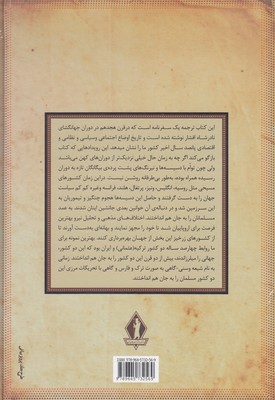 این کتاب ترجمه یک سفرنامه است که در قرن هجدهم در دوران جهانگشای
نادرشاه افشار نوشته شده است و تاریخ اوضاع اجتماعی و سیاسی و نظامی و
اقتصادی پانصد سال اخیر کشور ما را نشان میدهد. این رویدادهایی که کتاب
بازگو می‌کند، اگر چه به زمان حال خیلی نزدیک‌تر از دوران‌های کهن می‌باشد
ولی چون توام با دسیسه‌ها و نیرنگ‌های پشت پرده‌ی بیگانگان تازه به دوران
رسیده همراه بوده، به‌طور بی‌طرفانه روشن نیست. در این زمان کشورهای
مسیحی مثل روسیه، انگلیس، ونیز، پرتغال، هلند، فرانسه وغیره کم کم سیاست
جهان را به دست گرفتند و حاصل این دسیسه‌ها هجوم چنگیز و تیموریان به
این سرزمین شد و در دنباله‌ی آن خوانین بعدی جانشین اینان شدند. به عمد
مسلمانان را به جان هم انداختند. اختلاف‌های مذهبی و تحلیل نیرو بهترین
فرصت برای اروپاییان شد، تا خود را مجهز نمایند و بهانه‌ای به‌دست آورند تا
از کشورهای زرخیز این بخش از جهان بهره‌برداری کنند. بهترین نمونه برای
ما روابط چهارصد ساله دو کشور ترکیه(عثمانی) و ایران بود که این دو کشور،
جهانی را میلرزاندند. بیش از دو قرن این دو کشور را به جان هم انداختند، گاهی
به نام شیعه وسنی، گاهی به صورت ترک و فارس و گاهی با تحریکات مرزی این
دو کشور مسلمان را به جان هم انداختند.